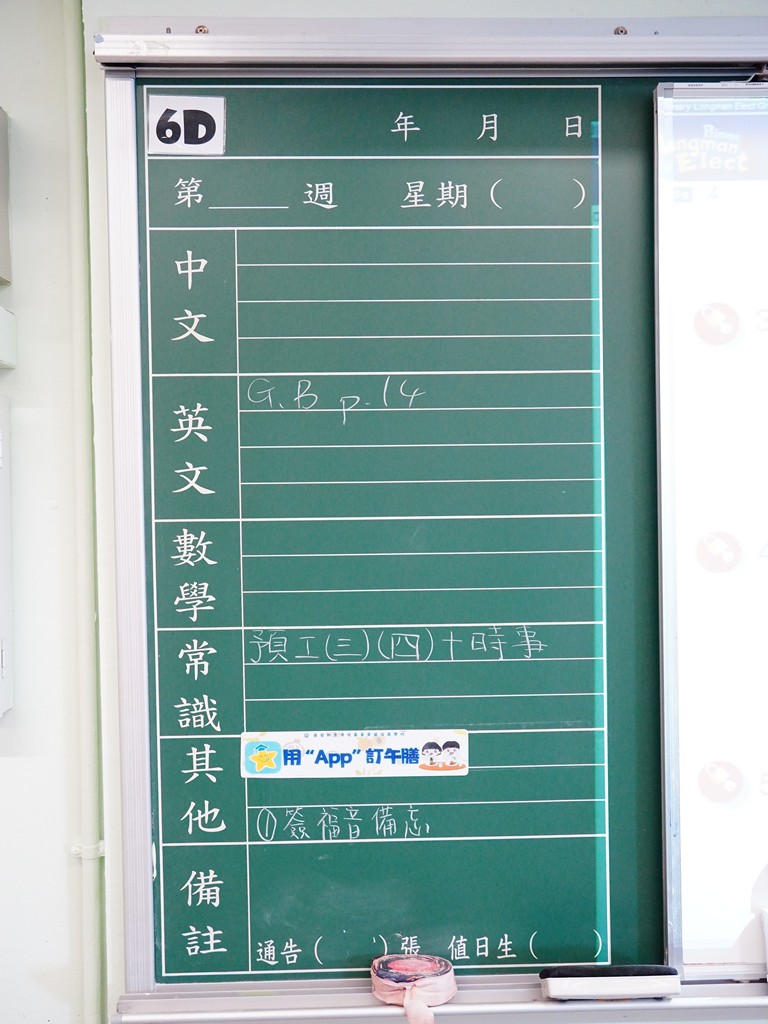 6D
年 月 日
第____週 星期( )
中文
英文
G.B p.14
數學
常識
預工(三)(四)+時事
其他
用“App”訂午膳
①簽福音備忘
備註
通告( )張 值日生( )
Longman Elect
Longman
Elect